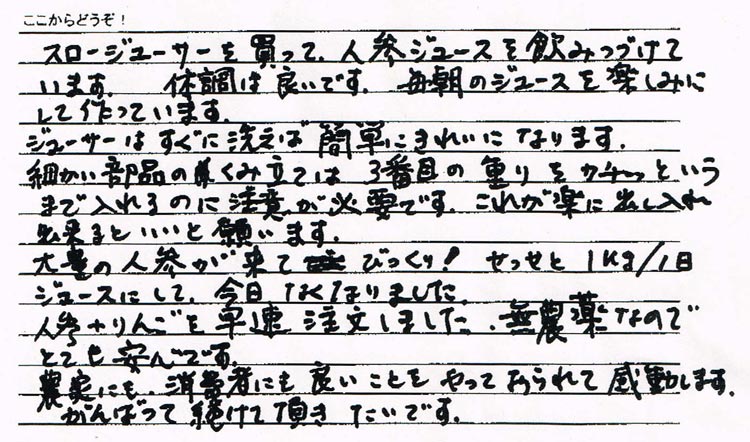 ここからどうぞ！
スロージューサーを買って、人参ジュースを飲みつづけて
います。 体調は良いです。 毎朝のジュースを楽しみに
して作っています。
ジューサーはすぐに洗えば簡単にきれいになります。
細かい部品のくみ立ては 3番目の重りをカチーッという
まで入れるのに注意が必要です。これが楽に出し入れ
出来るといいと願います。
大量の人参が来てびっくり！ せっせと 1Kg/1日
ジュースにして、今日なくなりました。
人参+りんごを早速注文しました。無農薬なので
とても安んです。
農家にも、消費者にも良いことをやっておられて感動します。
がんばって続けて頂きたいです。